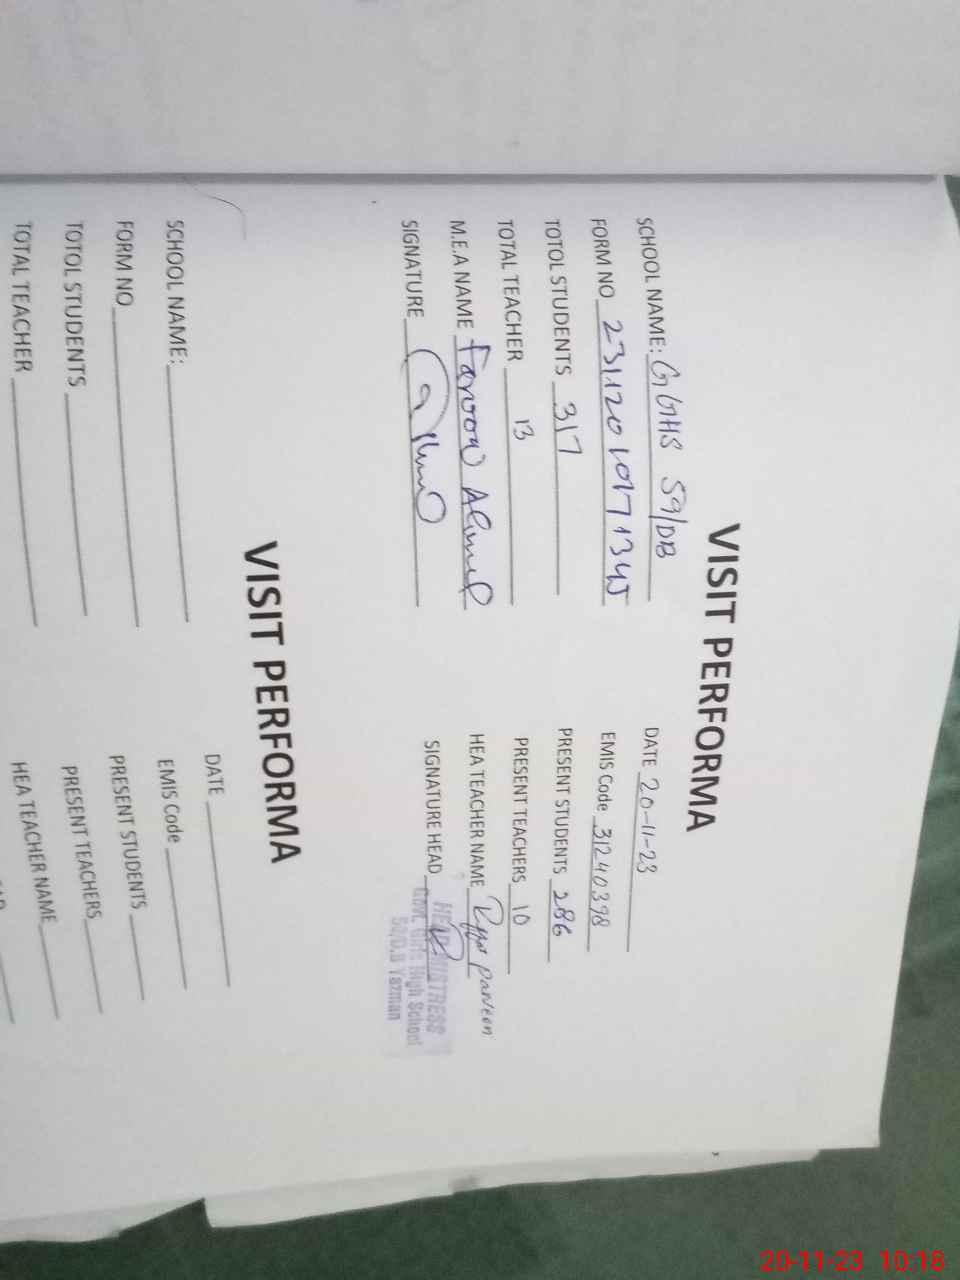 VISIT PERFORMA
SCHOOL NAME: GGHS 59/DB DATE 20-11-23
FORM NO EMIS Code 31240398
TOTOL STUDENTS 317 PRESENT STUDENTS 286
TOTAL TEACHER 13 PRESENT TEACHERS 10
M.E.A NAME Farooq Ahmed HEA TEACHER NAME Parveen
SIGNATURE SIGNATURE HEAD
HEADMISTRESS
Govt. Girls High School
59/D.B Yazman
VISIT PERFORMA
DATE
SCHOOL NAME: EMIS Code
FORM NO PRESENT STUDENTS
TOTOL STUDENTS PRESENT TEACHERS
TOTAL TEACHER HEA TEACHER NAME
20-11-23 10:18